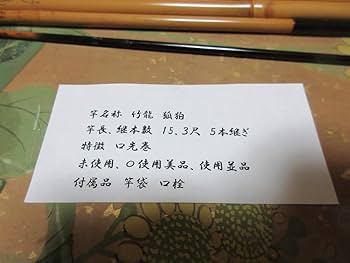 竿名称 竹龍 狐狛
竿長、継本数 15、3尺 5本継ぎ
特徴 口先巻
未使用、○使用美品、使用並品
付属品 竿袋 口栓